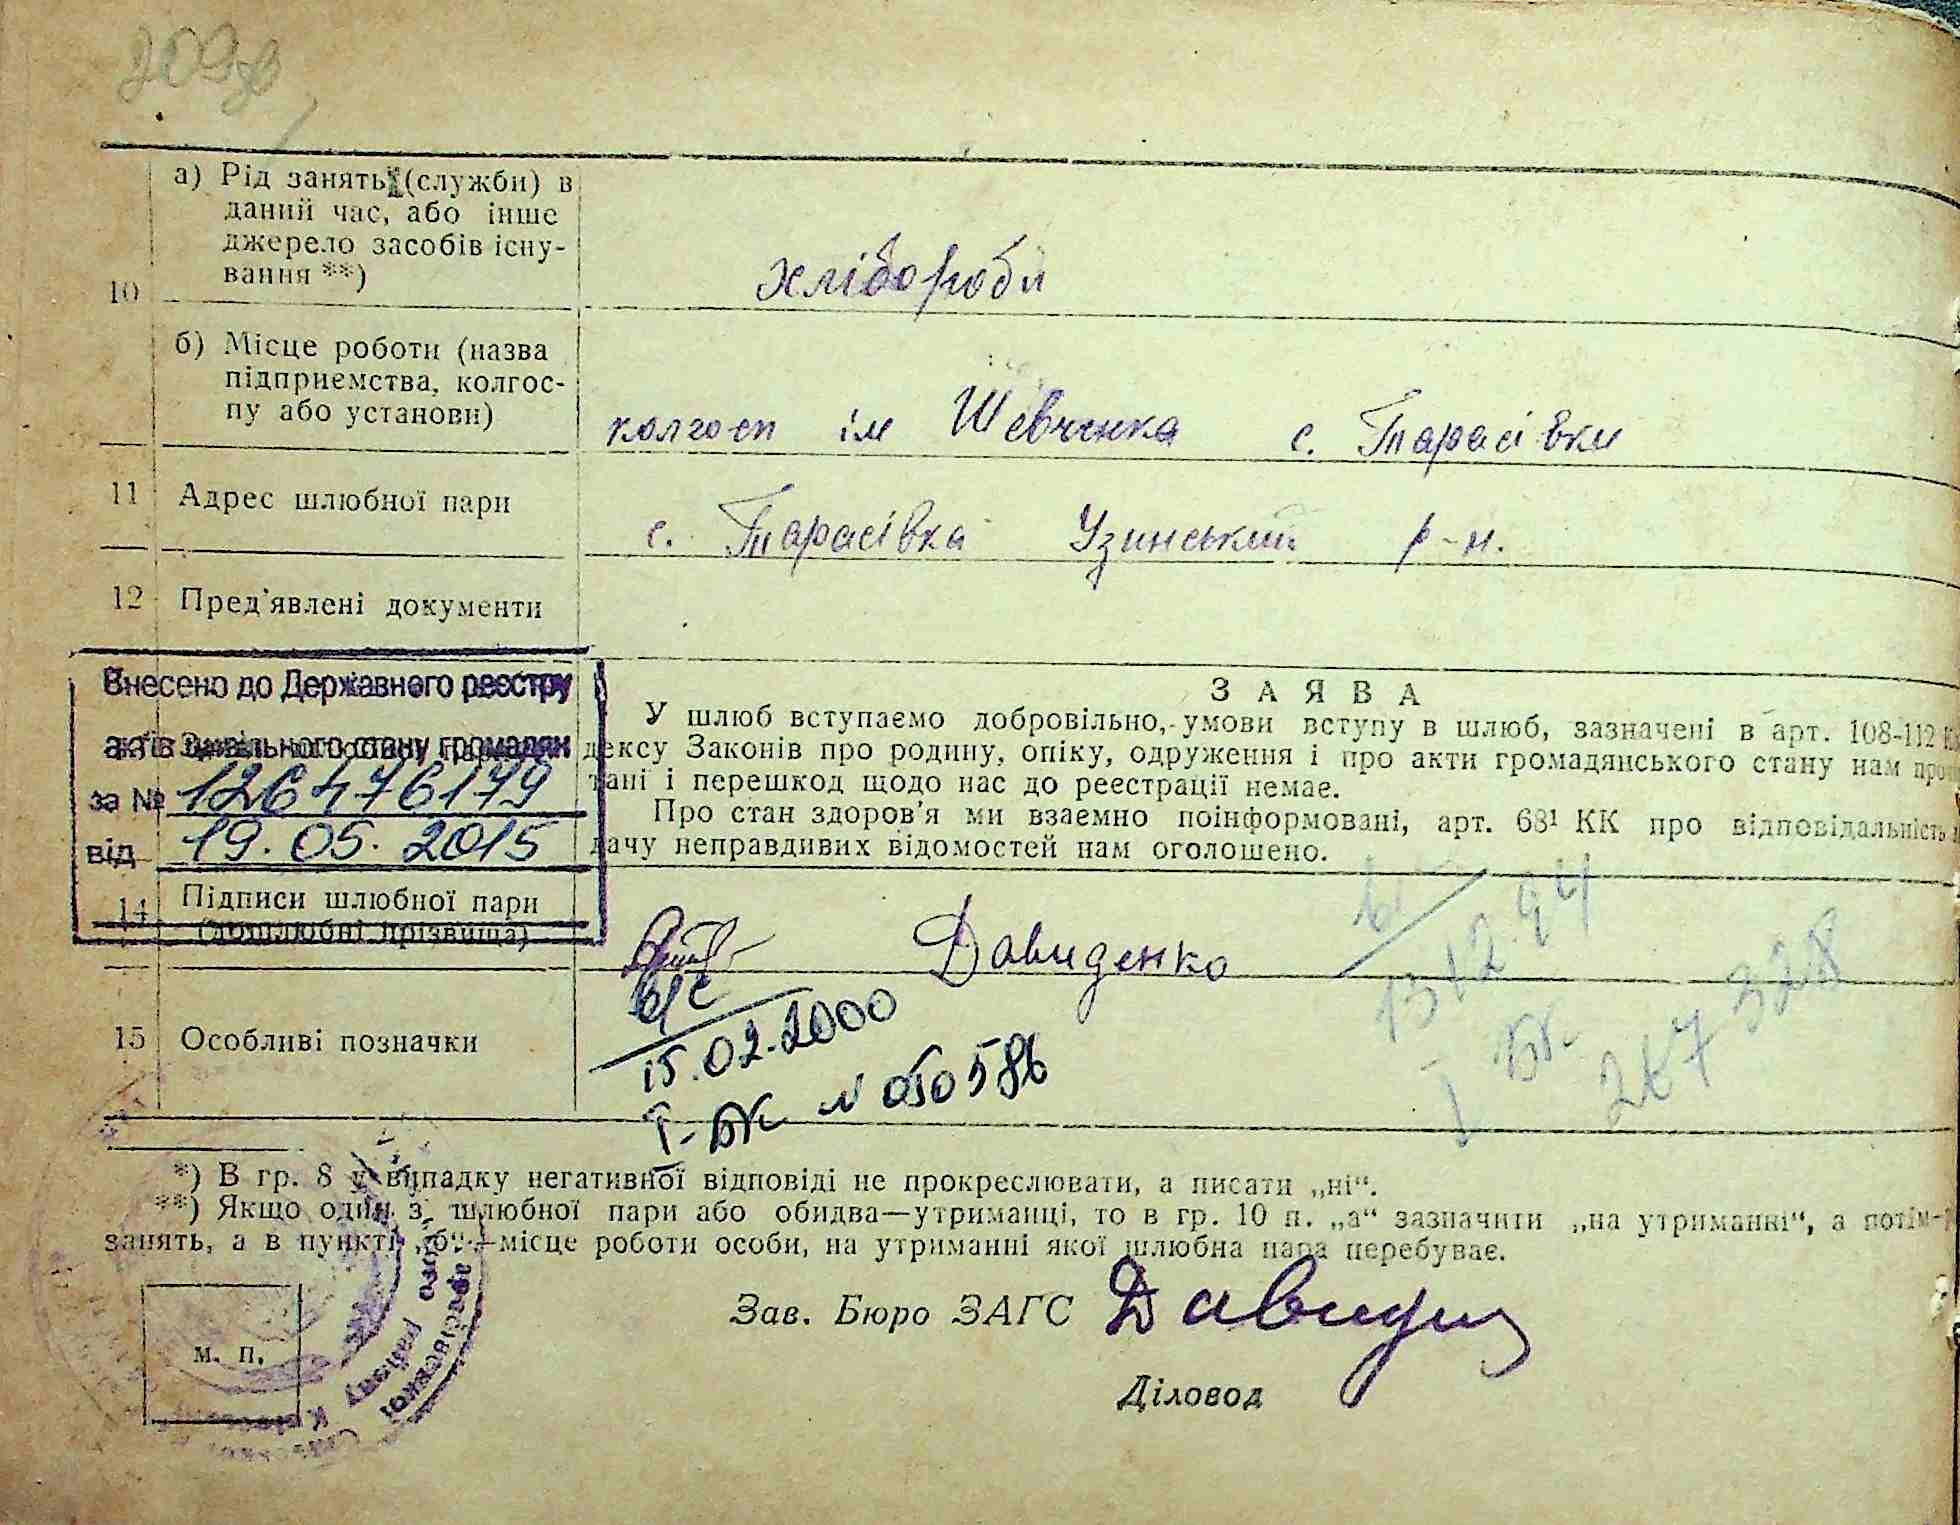 209
10
а) Рід занять (служби) в
даний час, або інше
джерело засобів існу-
вання **)
хлібороби
б) Місце роботи (назва
підприємства, колгос-
пу або установи)
колгосп ім Шевченка с. Тарасівки
11 Адрес шлюбної пари
с. Тарасівка Узинський р-н.
12 Пред'явлені документи
Внесено до Державного реєстру
актів цивільного стану громадян
за № 126476179
від 19.05.2015
ЗАЯВА
У шлюб вступаємо добровільно, умови вступу в шлюб, зазначені в арт. 108-112
дексу Законів про родину, опіку, одруження і про акти громадянського стану нам
тані і перешкод щодо нас до реєстрації немає.
Про стан здоров'я ми взаємно поінформовані, арт. 68¹ КК про відповідальність
дачу неправдивих відомостей нам оголошено.
14 Підписи шлюбної пари
(дошлюбні прізвища)
Давиденко
15 Особливі позначки
15.02.2000
I-БК N 050586
13 12.94
I БК 267328
*) В гр. 8 у випадку негативної відповіді не прокреслювати, а писати „ні“.
**) Якщо один з шлюбної пари або обидва—утриманці, то в гр. 10 п. „а“ зазначити „на утриманні“, а потім
занять, а в пункті „б“—місце роботи особи, на утриманні якої шлюбна пара перебуває.
Зав. Бюро ЗАГС
м. п.
Діловод